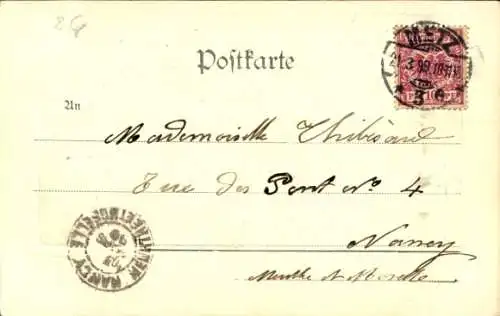 2G
Postkarte
METZ
21 3 99
An
Mademoiselle Thibésard
Rue des Pont No 4
Nancy
Meurthe et Moselle
NANCY
MEURTHE ET MOSELLE